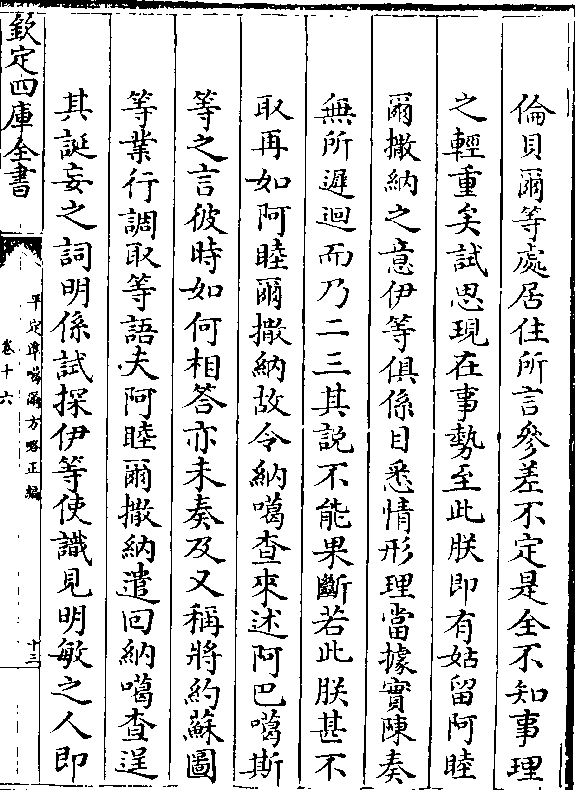 倫貝爾等處居住所言參差不定是全不知事理
之輕重矣試思現在事勢至此朕即有姑留阿睦
爾撒納之意伊等俱係目悉情形理當據實陳奏
無所遲迴而乃二三其說不能果斷若此朕甚不
取再如阿睦爾撒納故令納噶查來述阿巴噶斯
等之言彼時如何相答亦未奏及又稱將約蘇圖
等業行調取等語夫阿睦爾撒納遣回納噶查逞
其誕妄之詞明係試探伊等使識見明敏之人即
欽定四庫全書
平定準噶爾方略正編
卷十六
十三